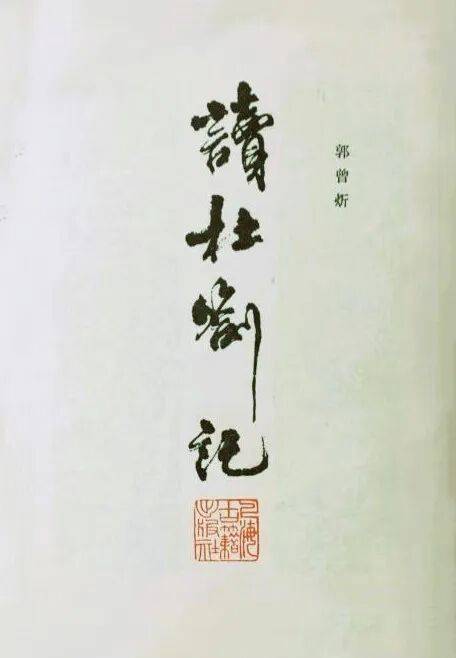 郭曾炘
讀杜劄記
上海古籍出版社